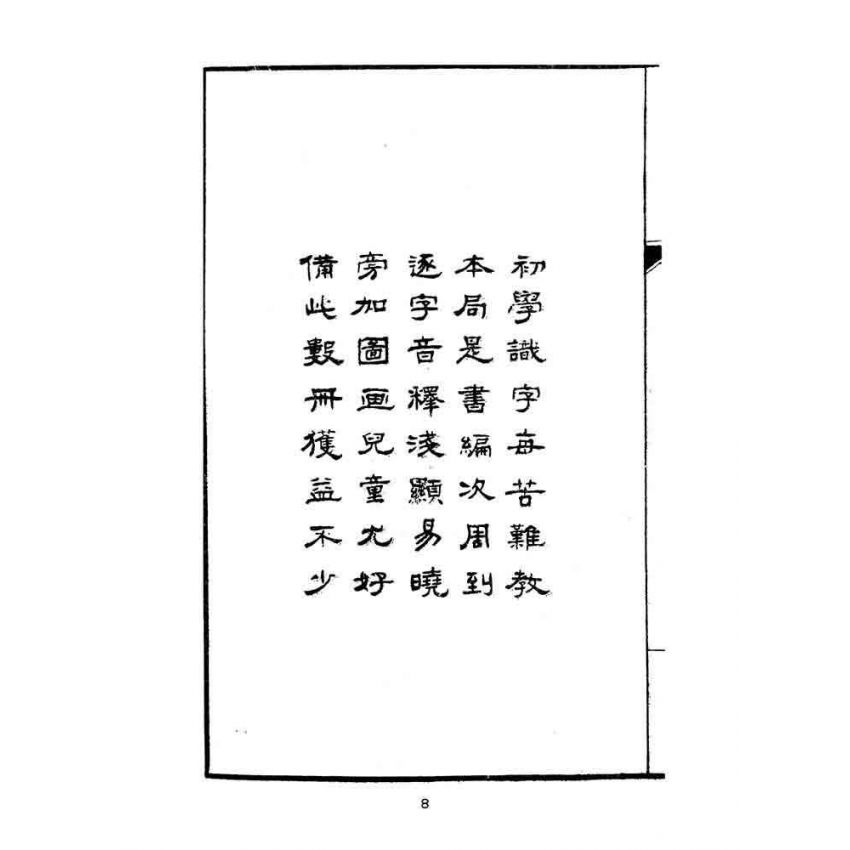 初學識字每苦難教
本局是書編次周到
逐字音釋淺顯易曉
旁加圖画兒童尤好
備此數冊獲益不少
8